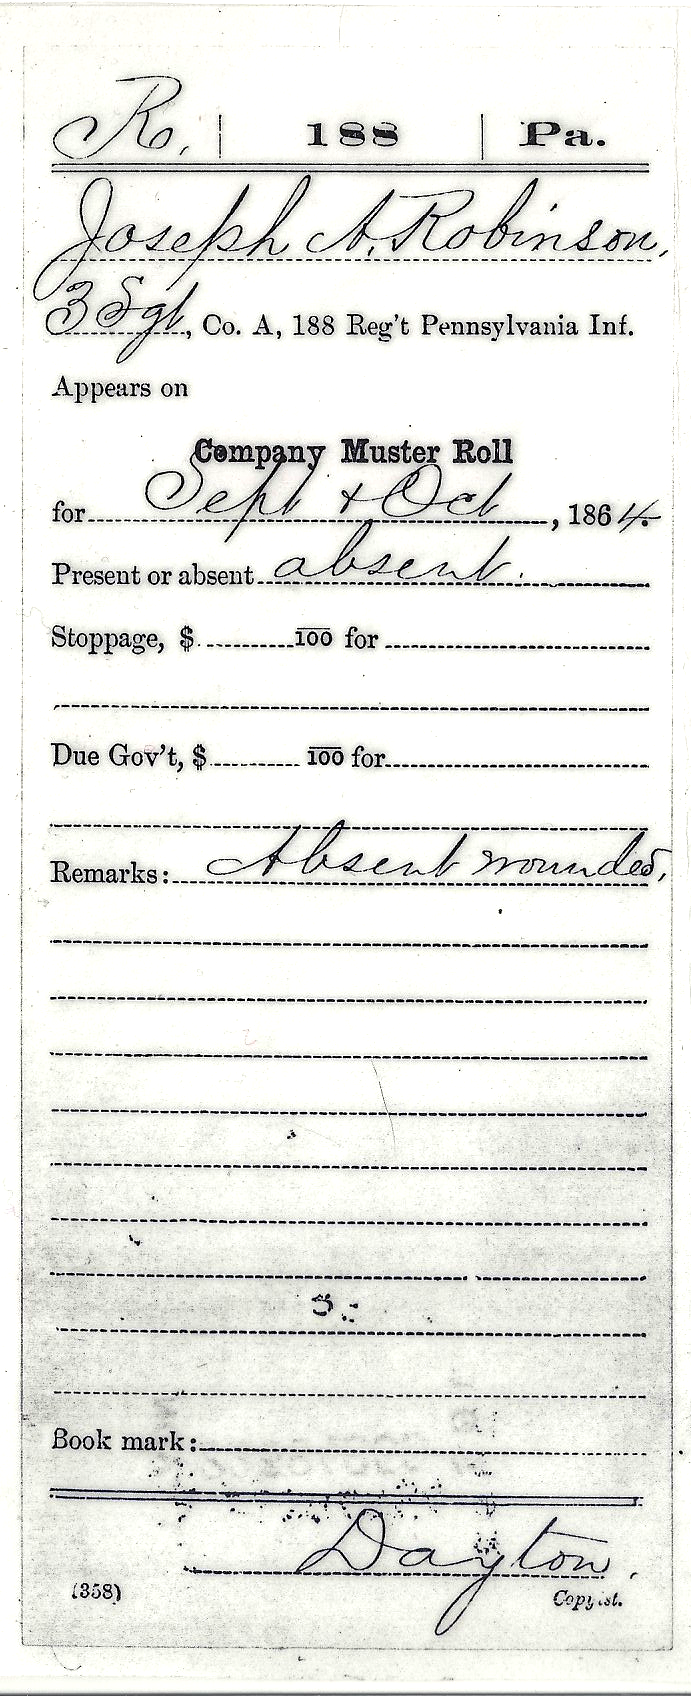 R. | 188 | Pa.
Joseph A. Robinson,
3 Sgt, Co. A, 188 Reg't Pennsylvania Inf.
Appears on
Company Muster Roll
for Sept & Oct, 1864.
Present or absent absent.
Stoppage, $ 100 for
Due Gov't, $ 100 for
Remarks: Absent wounded.
Book mark:
Dayton.
(358) Copyist.